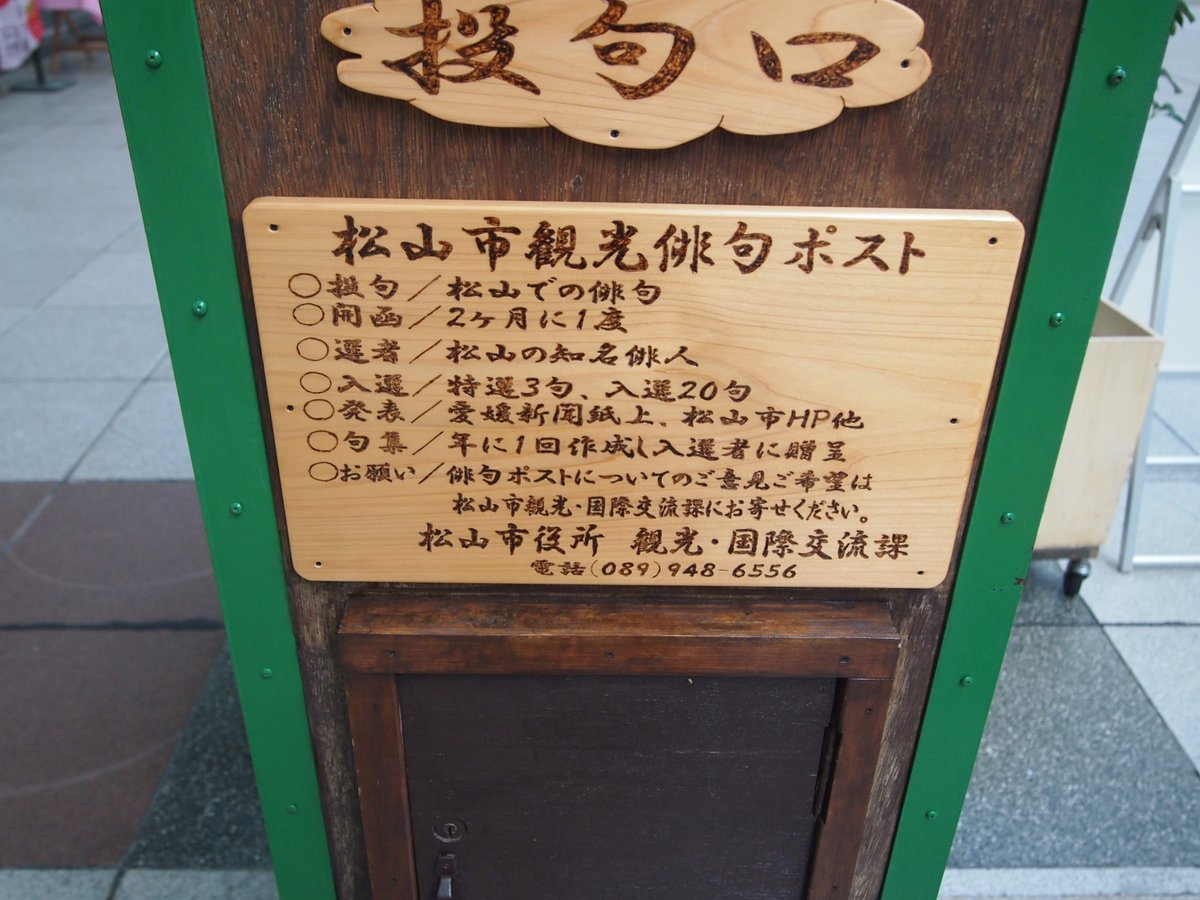 投句口
松山市観光俳句ポスト
○投句／松山での俳句
○開函／2ヶ月に1度
○選者／松山の知名俳人
○入選／特選3句、入選20句
○発表／愛媛新聞紙上、松山市HP他
○句集／年に1回作成し入選者に贈呈
○お願い／俳句ポストについてのご意見ご希望は
松山市観光・国際交流課にお寄せください。
松山市役所 観光・国際交流課
電話(089)948-6556